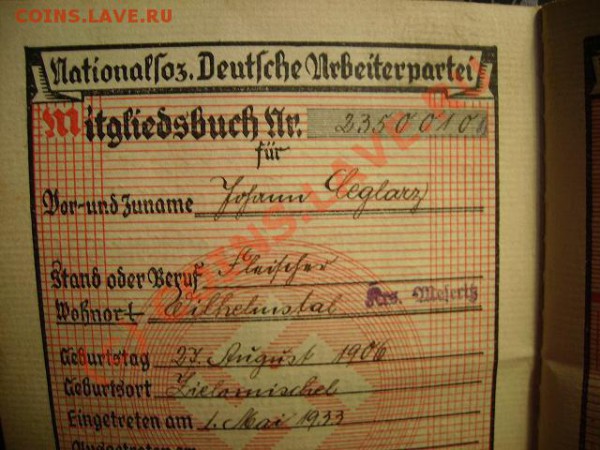 COINS.LAVE.RU
Nationalsoz. Deutsche Arbeiterpartei
Mitgliedsbuch Nr. 23500106
für
Vor- und Zuname Johann Ceglarz
Stand oder Beruf Fleischer
Wohnort Wilhelmstal Krs. Meseritz
Geburtstag 27. August 1906
Geburtsort
Eingetreten am 1. Mai 1933